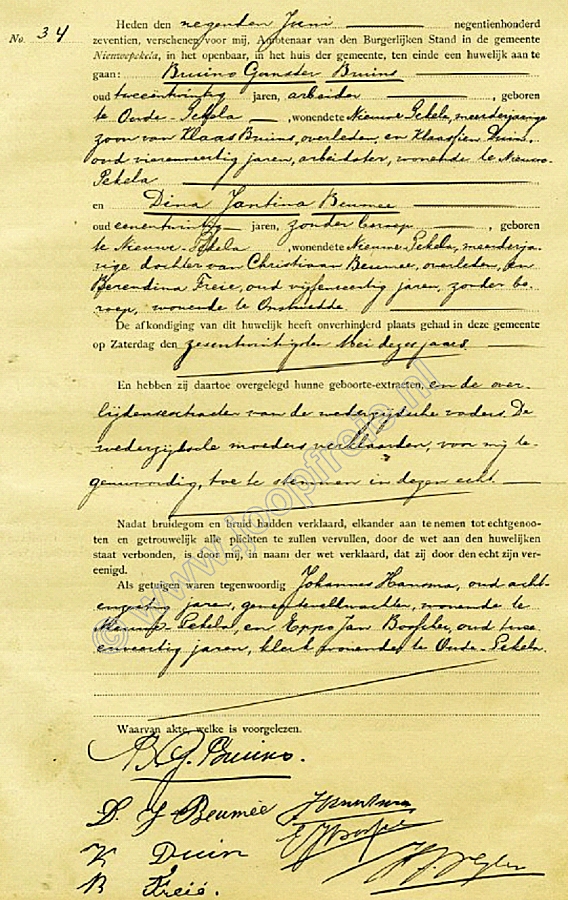 No. 34
Heden den negenden Juni negentienhonderd
zeventien, verschenen voor mij, Ambtenaar van den Burgerlijken Stand in de gemeente
Nieuwepekela, in het openbaar, in het huis der gemeente, ten einde een huwelijk aan te
gaan: Bruino Ganster Bruins
oud tweeentwintig jaren, arbeider, geboren
te Oude-Pekela, wonende te Nieuwe Pekela, meerderjarige
zoon van Klaas Bruins, overleden, en Klaassien Duin,
oud vierenveertig jaren, arbeidster, wonende te Nieuwe-
Pekela
en Dina Jantina Beumee
oud eenentwintig jaren, zonder beroep, geboren
te Nieuwe Pekela, wonende te Nieuwe Pekela, meerderja-
rige dochter van Christiaan Beumee, overleden, en
Berendina Freie, oud vijfenveertig jaren, zonder be-
roep, wonende te Onstwedde.
De afkondiging van dit huwelijk heeft onverhinderd plaats gehad in deze gemeente
op Zaterdag den zesentwintigsten Mei dezes jaars.
En hebben zij daartoe overgelegd hunne geboorte-extracten, en de over-
lijdensextracten van de wederzijdsche vaders. De
wederzijdsche moeders verklaarden, voor mij te-
genwoordig, toe te stemmen in dezen echt.
Nadat bruidegom en bruid hadden verklaard, elkander aan te nemen tot echtgenoo-
ten en getrouwelijk alle plichten te zullen vervullen, door de wet aan den huwelijken
staat verbonden, is door mij, in naam der wet verklaard, dat zij door den echt zijn ver-
eenigd.
Als getuigen waren tegenwoordig Johannes Hansma, oud acht-
enveertig jaren, gemeenteveldwachter, wonende te
Nieuwe-Pekela, en Eppo Jan Booske, oud twee-
enveertig jaren, klerk wonende te Oude-Pekela.
Waarvan akte, welke is voorgelezen.
B. G. Bruins.
D. J Beumee
K Duin
B Freie.
© www.joopfreie.nl